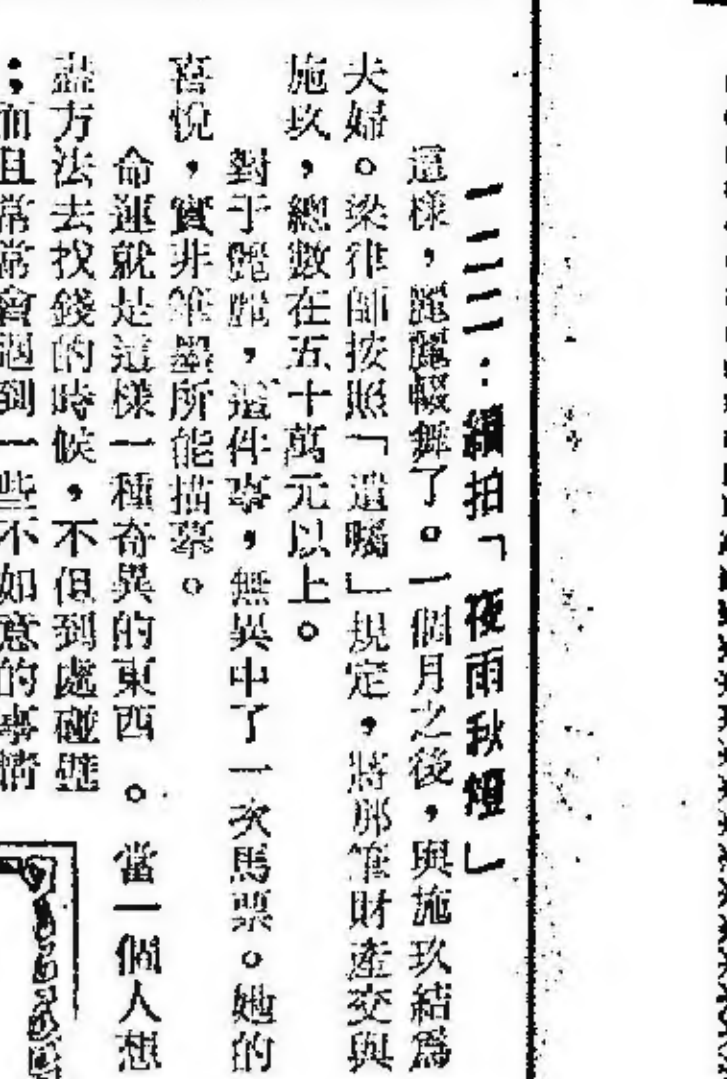 一二二二·續拍「夜雨秋燈」
這樣，麗麗輟舞了。一個月之後，與施玖結爲
夫婦。梁律師按照「遺囑」規定，將那筆財產交與
施玖，總數在五十萬元以上。
對于麗麗，這件事，無異中了一次馬票。她的
喜悅，實非筆墨所能描摹。
命運就是這樣一種奇異的東西。當一個人想
盡方法去找錢的時候，不但到處碰壁
；而且常常會遇到一些不如意的事情